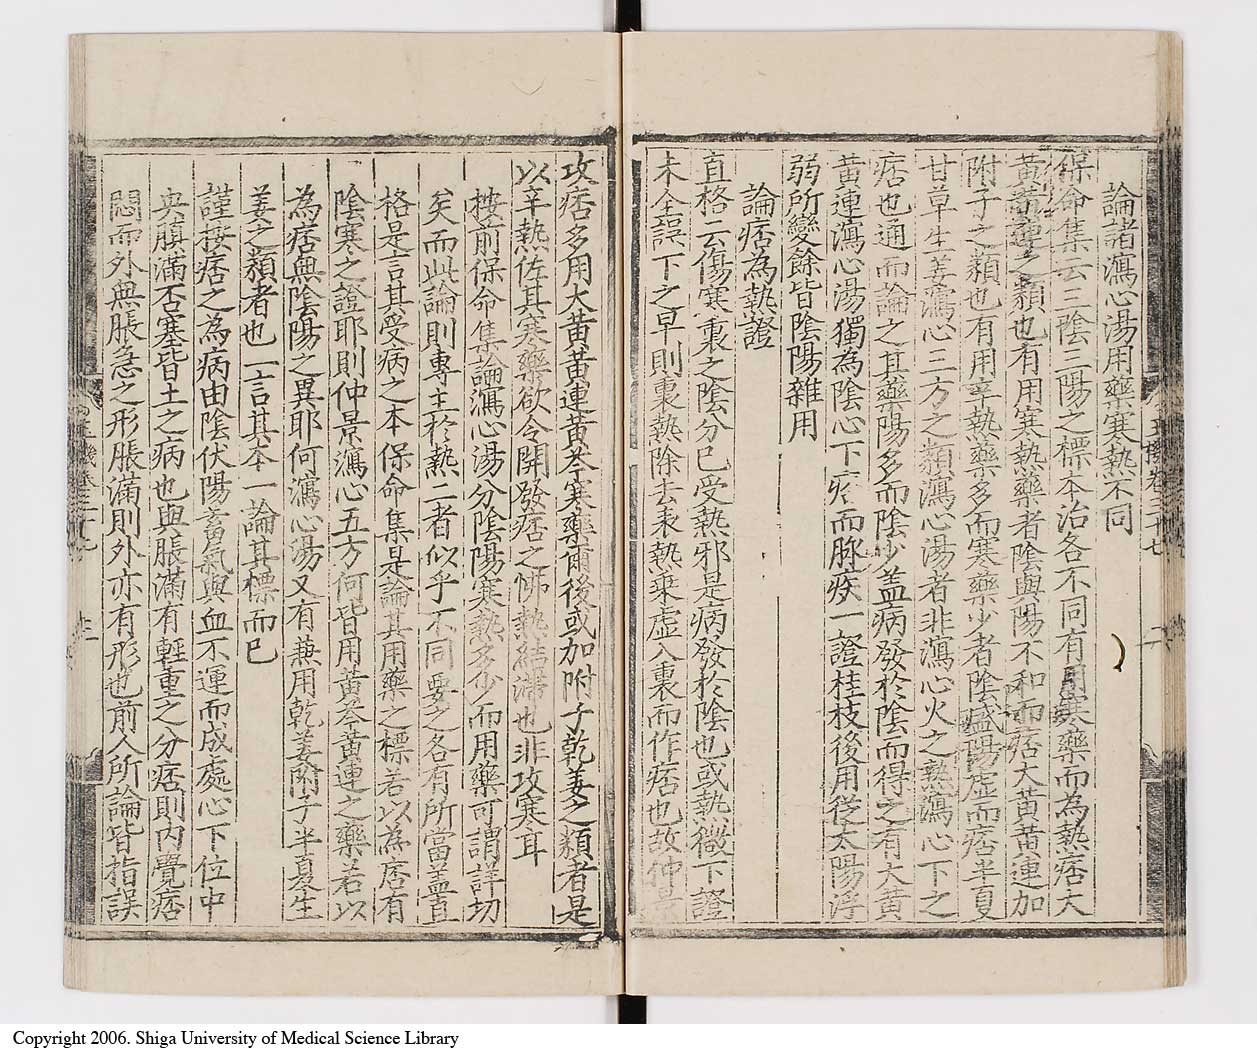 論諸瀉心湯用藥寒熱不同
保命集云三陰三陽之標本治各不同有用寒藥而為熱痞大
黃黃連之類也有用寒熱藥者陰與陽不和而痞大黃黃連加
附子之類也有用辛熱藥多而寒藥少者陰盛陽虛而痞半夏
甘草生姜瀉心三方之類瀉心湯者非瀉心火之熱瀉心下之
痞也通而論之其藥陽多而陰少盖病發於陰而得之有大黃
黃連瀉心湯獨為陰心下痞而脉疾一證桂枝後用從太陽浮
弱所變餘皆陰陽雜用
論痞為熱證
直格云傷寒裏之陰分已受熱邪是病發於陰也或熱微下證
未全誤下之早則裏熱除去表熱乘虛入裏而作痞也故仲景
攻痞多用大黃黃連黃芩寒藥爾後或加附子乾姜之類者是
以辛熱佐其寒藥欲令開發痞之怫熱結滯也非攻寒耳
按前保命集論瀉心湯分陰陽寒熱多少而用藥可謂詳切
矣而此論則專主於熱二者似乎不同要之各有所當盖直
格是言其受病之本保命集是論其用藥之標若以為痞有
陰寒之證耶則仲景瀉心五方何皆用黃芩黃連之藥若以
為痞無陰陽之異耶何瀉心湯又有兼用乾姜附子半夏生
姜之類者也一言其本一論其標而已
謹按痞之為病由陰伏陽蓄氣與血不運而成處心下位中
央䐜滿否塞皆土之病也與脹滿有輕重之分痞則內覺痞
悶而外無脹急之形脹滿則外亦有形也前人所論皆指誤
卷三十七
卷三十九
Copyright 2006. Shiga University of Medical Science Library